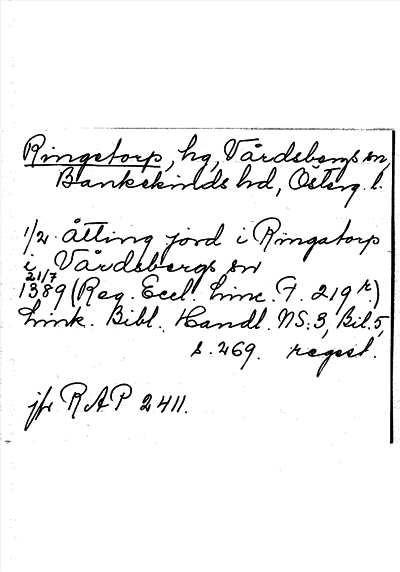 Ringstorp, hg, Vårdsbergs sn,
Bankekinds hd, Österg. l.
1/2 åtting jord i Ringstorp
i Vårdsbergs sn
21/7
1389 (Reg. Eccl. Linc. F. 219 r.)
Link. Bibl. Handl. NS. 3, Bil. 5,
s. 269. regest.
jfr RAP 2411.